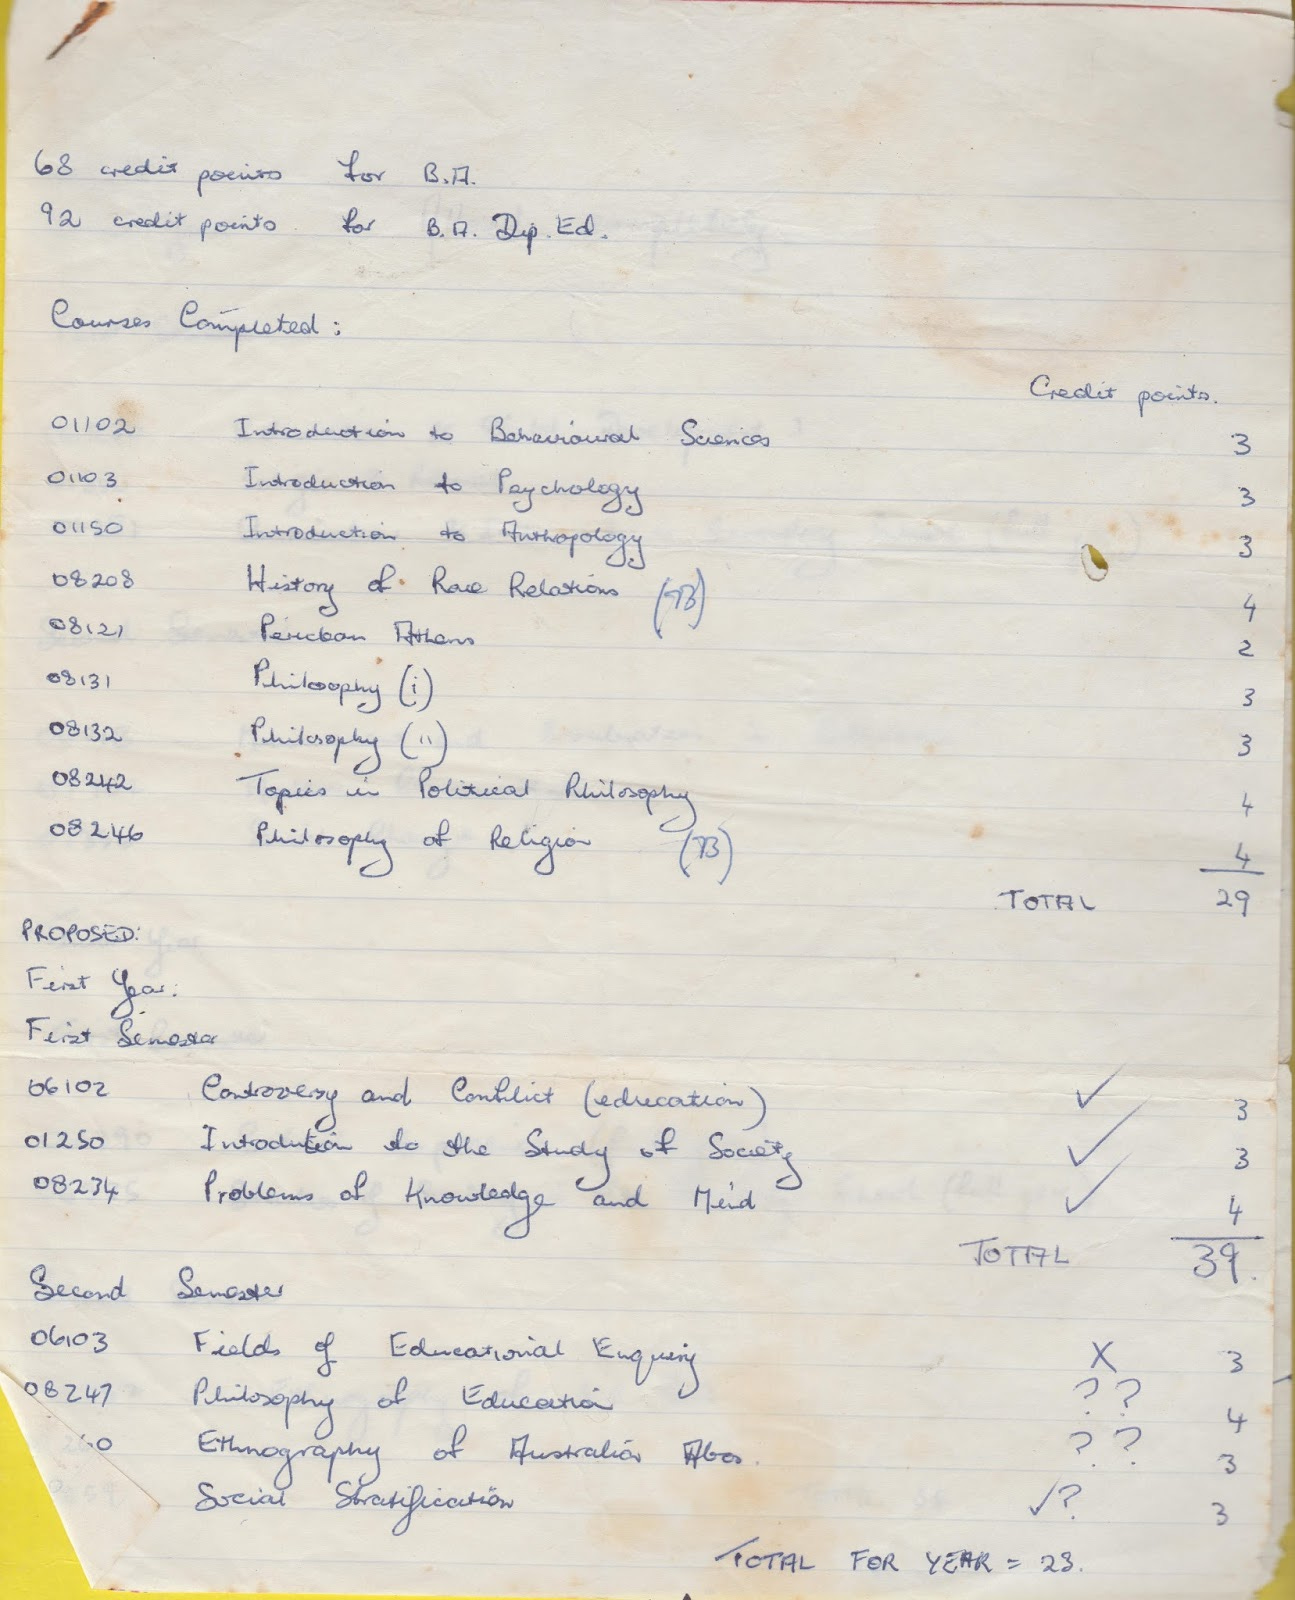 68 credit points for B.A.
92 credit points for B.A. Dip. Ed.
Courses Completed:
Credit points.
01102 Introduction to Behavioural Sciences 3
01103 Introduction to Psychology 3
01150 Introduction to Anthopology 3
08208 History of Race Relations 4
08121 Periclean Athens 2
08131 Philosophy (i) 3
08132 Philosophy (ii) 3
08242 Topics in Political Philosophy 4
08246 Philosophy of Religion 4
TOTAL 29
PROPOSED:
First Year:
First Semester
06102 Controversy and Conflict (education) ✓ 3
01250 Introdution to the Study of Society ✓ 3
08234 Problems of Knowledge and Mind ✓ 4
TOTAL 39.
Second Semester
06103 Fields of Educational Enquiry X 3
08247 Philosophy of Education ? ? 4
Ethnography of Australian Abos. ? ? 3
Social Stratification ✓? 3
TOTAL FOR YEAR = 23.